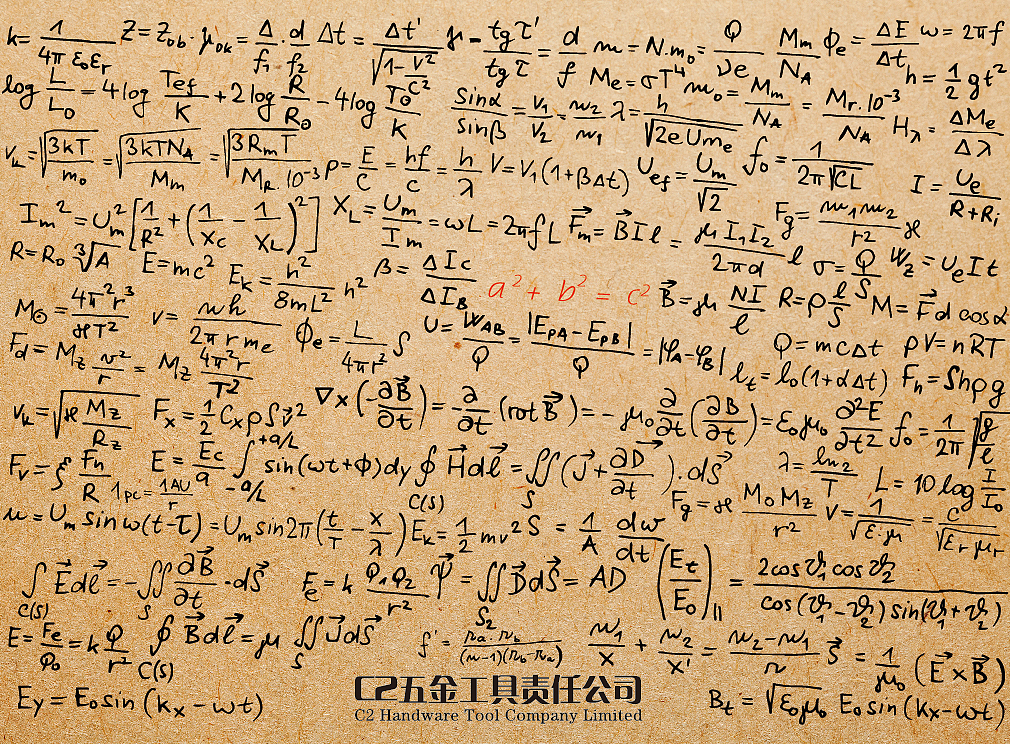 k = 1/(4π ε₀εᵣ) Z = Z_ob · γ_ok = Δ/f₁ · d/f₂ Δt = Δt'/√(1 - v²/c²) γ - tg τ'/tg τ = d/f m = N·m₀ = Q/νe M_m/N_A Φe = ΔE/Δt ω = 2πf
log L/L₀ = 4 log T_ef/K + 2 log R/R₀ - 4 log T₀/K sinα/sinβ = v₁/v₂ = n₂/n₁ λ = h/√(2eUm_e) M_e = σT⁴ m₀ = M_m/N_A = M_r·10⁻³/N_A h = ½gt² H_λ = ΔM_e/Δλ
v_k = √(3kT/m₀) = √(3kTN_A/M_m) = √(3R_mT/(M_R·10⁻³)) p = E/c = hf/c = h/λ V = V₁(1+βΔt) U_ef = U_m/√2 f₀ = 1/(2π√CL) I = U_e/(R+R_i)
I_m² = U_m²[1/R² + (1/X_C - 1/X_L)²] X_L = U_m/I_m = ωL = 2πfL F⃗_m = B⃗Iℓ = μI₁I₂/(2πd) ℓ F_g = m₁m₂/r² ϰ
R = R₀ ∛A E = mc² E_k = h²/(8mL²) n² β = ΔI_C/ΔI_B a² + b² = c² σ = Q/S W_z = U_eIt
M_⊙ = 4π²r³/(ϰT²) v = nh/(2πrm_e) Φe = L/(4πr²) S B⃗ = μ NI/ℓ R = ρ ℓ/S M = F⃗d cosα
F_d = M_z v²/r = M_z 4π²r/T² U = W_AB/Q = |E_PA - E_PB|/Q = |φ_A - φ_B| Q = mcΔt pV = nRT
ℓ_t = ℓ₀(1+αΔt) F_h = Shρg
v_k = √(ϰ M_z/R_z) F_x = ½C_xρSv² ∇×(-∂B⃗/∂t) = -∂/∂t (rot B⃗) = -μ₀ ∂/∂t (∂B/∂t) = ε₀μ₀ ∂²E/∂t² f₀ = 1/2π √(g/ℓ)
F_v = ξ F_n/R 1pc = 1AU/r E = E_c/a ∫_{-a/L}^{+a/L} sin(ωt+Φ)dy ∮_{C(S)} H⃗dℓ⃗ = ∬_S (J⃗ + ∂D⃗/∂t)·dS⃗ λ = ln2/T L = 10 log I/I₀
u = U_m sin ω(t-τ) = U_m sin2π(t/T - x/λ) E_k = ½mv² S = 1/A dω/dt F_g = ϰ M₀M_z/r² v = 1/√(ε·μ) = c/√(εᵣμᵣ)
∫_{C(S)} E⃗dℓ⃗ = -∬_S ∂B⃗/∂t · dS⃗ F_e = k Q₁Q₂/r² Ψ⃗ = ∬_{S₂} D⃗dS⃗ = AD (E_t/E₀)_|| = 2cosϑ₁cosϑ₂/(cos(ϑ₁-ϑ₂)sin(ϑ₁+ϑ₂))
E = F_e/Q₀ = k Q/r² ∮_{C(S)} B⃗dℓ⃗ = μ ∬_S J⃗dS⃗ f' = n_a·n_b/((n-1)(n_b-n_a)) n₁/x + n₂/x' = n₂-n₁/r S⃗ = 1/μ₀ (E⃗×B⃗)
C2五金工具责任公司
C2 Hardware Tool Company Limited
E_y = E₀sin(k_x-ωt) B_t = √(ε₀μ₀) E₀sin(k_x-ωt)